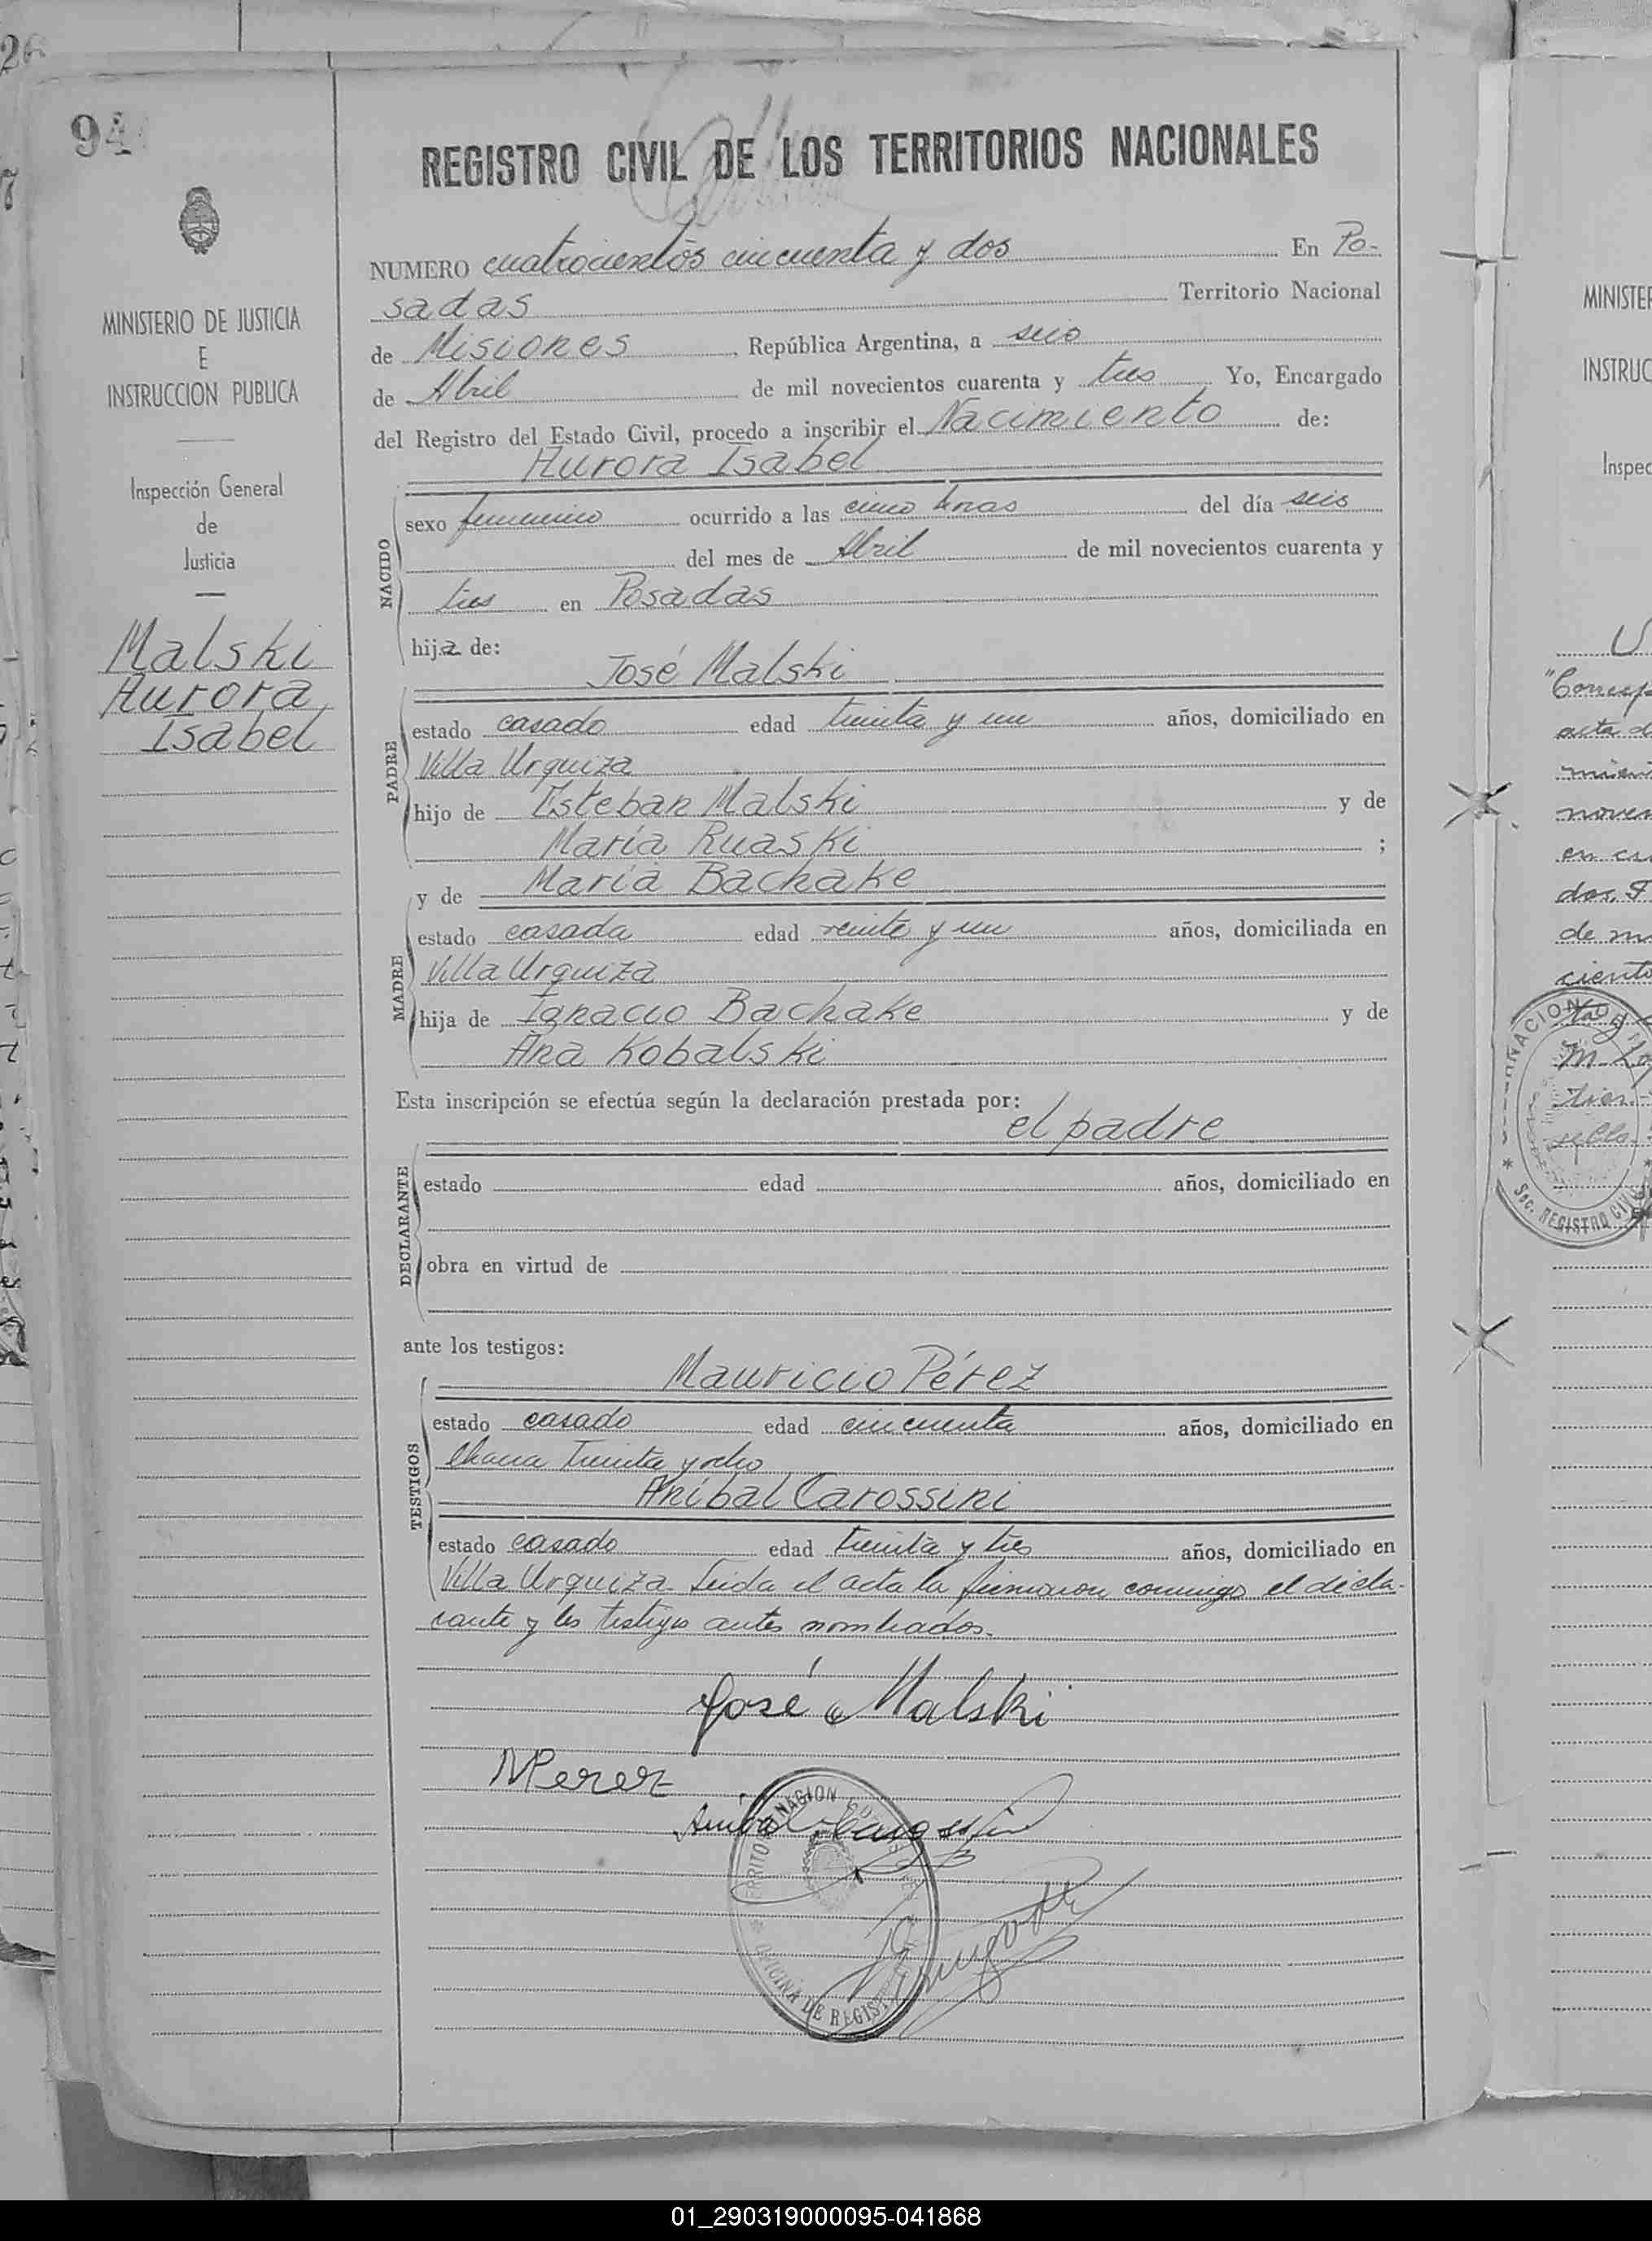 94
REGISTRO CIVIL DE LOS TERRITORIOS NACIONALES
MINISTERIO DE JUSTICIA
E
INSTRUCCION PUBLICA
Inspección General
de
Justicia
Malski
Aurora
Isabel
NUMERO cuatrocientos cincuenta y dos En Po-
sadas Territorio Nacional
de Misiones, República Argentina, a seis
de Abril de mil novecientos cuarenta y tres Yo, Encargado
del Registro del Estado Civil, procedo a inscribir el Nacimiento de:
Aurora Isabel
NACIDO
sexo femenino ocurrido a las cinco horas del día seis
del mes de Abril de mil novecientos cuarenta y
tres en Posadas
hija de:
José Malski
PADRE
estado casado edad treinta y un años, domiciliado en
Villa Urquiza
hijo de Esteban Malski y de
María Ruaski ;
y de María Bachake
MADRE
estado casada edad veinte y un años, domiciliada en
Villa Urquiza
hija de Ignacio Bachake y de
Ana Kobalski
Esta inscripción se efectúa según la declaración prestada por:
el padre
DECLARANTE
estado edad años, domiciliado en
obra en virtud de
ante los testigos:
Mauricio Pérez
TESTIGOS
estado casado edad cincuenta años, domiciliado en
Chacra treinta y ocho
Aníbal Carossini
estado casado edad treinta y tres años, domiciliado en
Villa Urquiza. Leida el acta la firmaron conmigo el decla-
rante y los testigos antes nombrados.
José Malski
MPerez
Anibal Carossini
OFICINA DE REGISTRO
MINISTER
INSTRUC
Inspec
acta d
noven
dos.
de m
ciento
sello
Sec. REGISTRO CIVIL
01_290319000095-041868